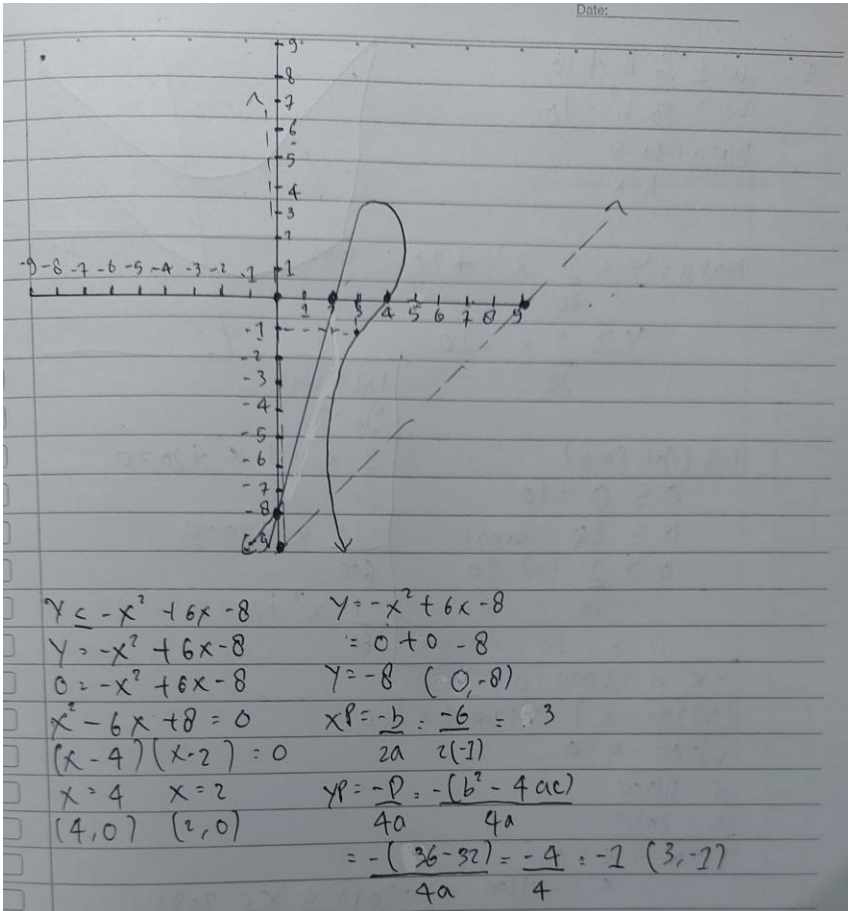 Date:
9
8
7
6
5
4
3
2
1
-9 -8 -7 -6 -5 -4 -3 -2 -1
1 2 3 4 5 6 7 8 9
-1
-2
-3
-4
-5
-6
-7
-8
-9
y ≤ -x² + 6x - 8
y = -x² + 6x - 8
0 = -x² + 6x - 8
x² - 6x + 8 = 0
(x - 4)(x - 2) = 0
x = 4 x = 2
(4,0) (2,0)
y = -x² + 6x - 8
= 0 + 0 - 8
y = -8 (0,-8)
xP = -b/2a = -6/2(-1) = 3
yP = -D/4a = -(b² - 4ac)/4a
= -(36-32)/4a = -4/4 = -1 (3,-1)